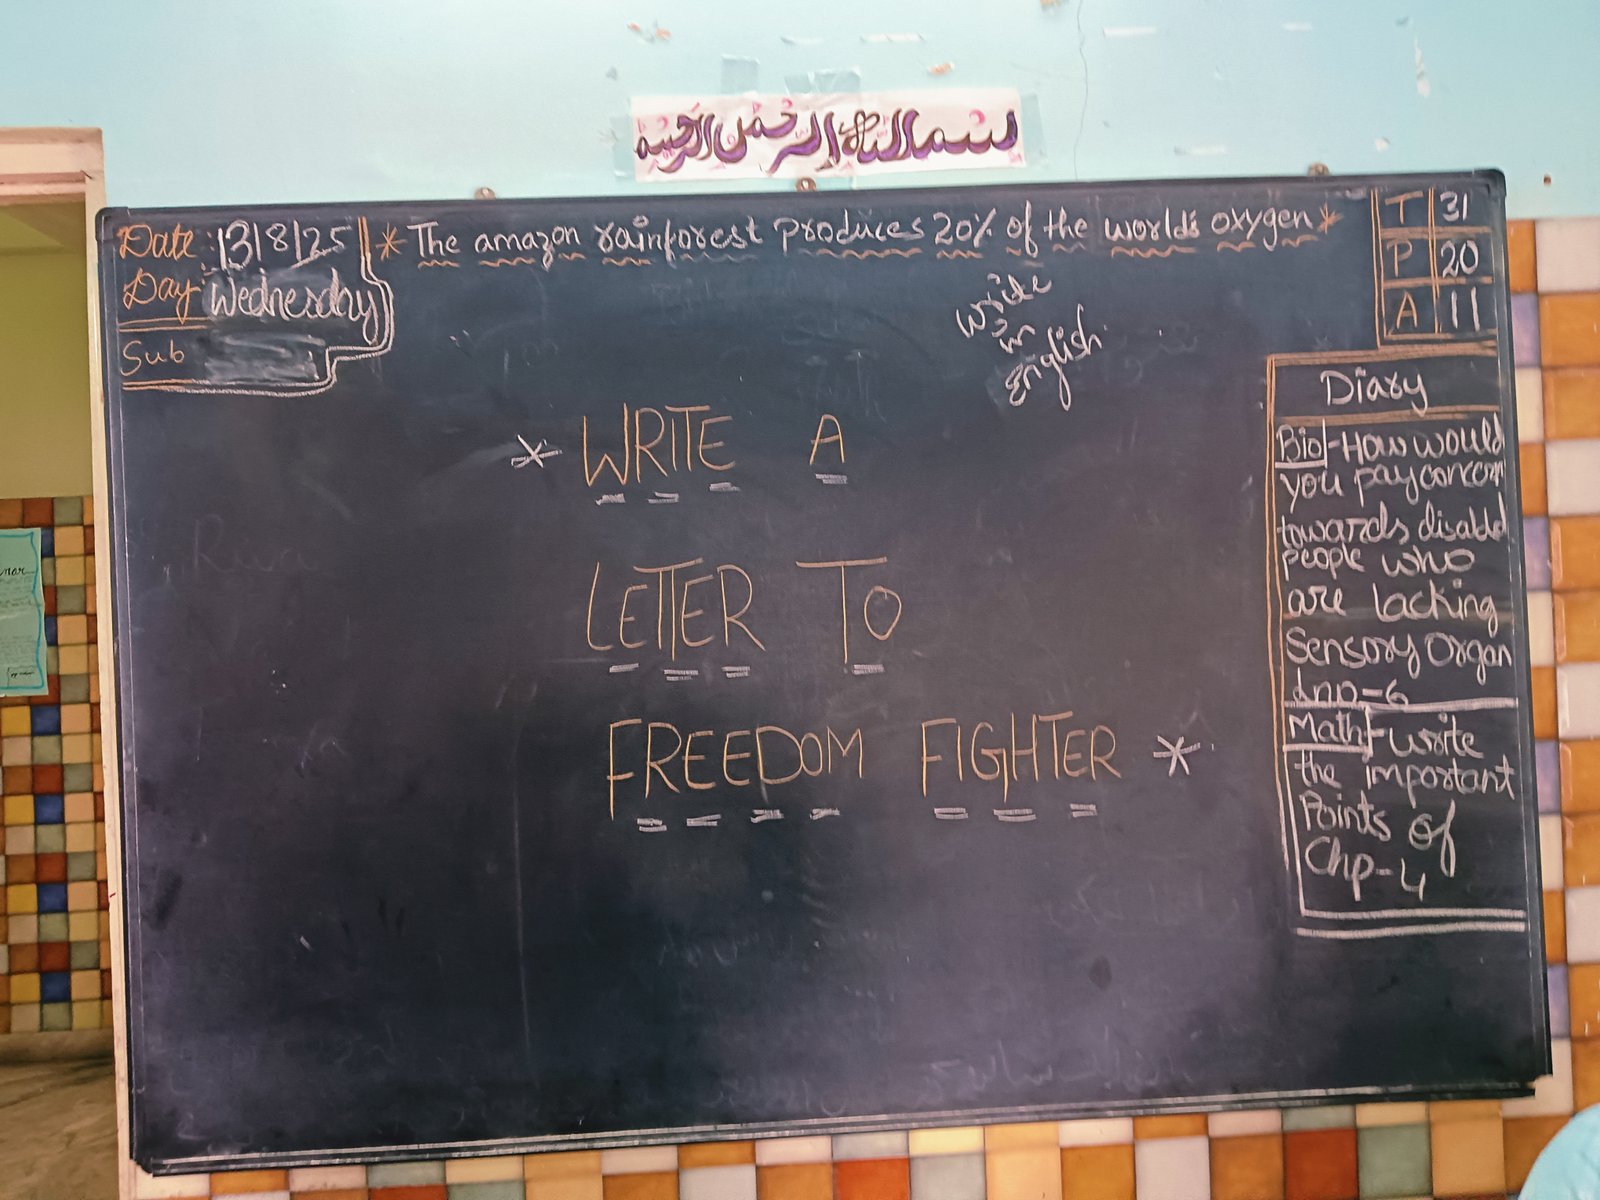 بسم الله الرحمن الرحيم
Date: 13/8/25
Day: Wednesday
Sub
* The amazon rainforest produces 20% of the world's oxygen *
T 31
P 20
A 11
write
in
english
* WRITE A
LETTER TO
FREEDOM FIGHTER *
Diary
Bio - How would
you pay concern
towards disabled
people who
are lacking
Sensory Organ
Math - write
the important
Points of
Chp-4